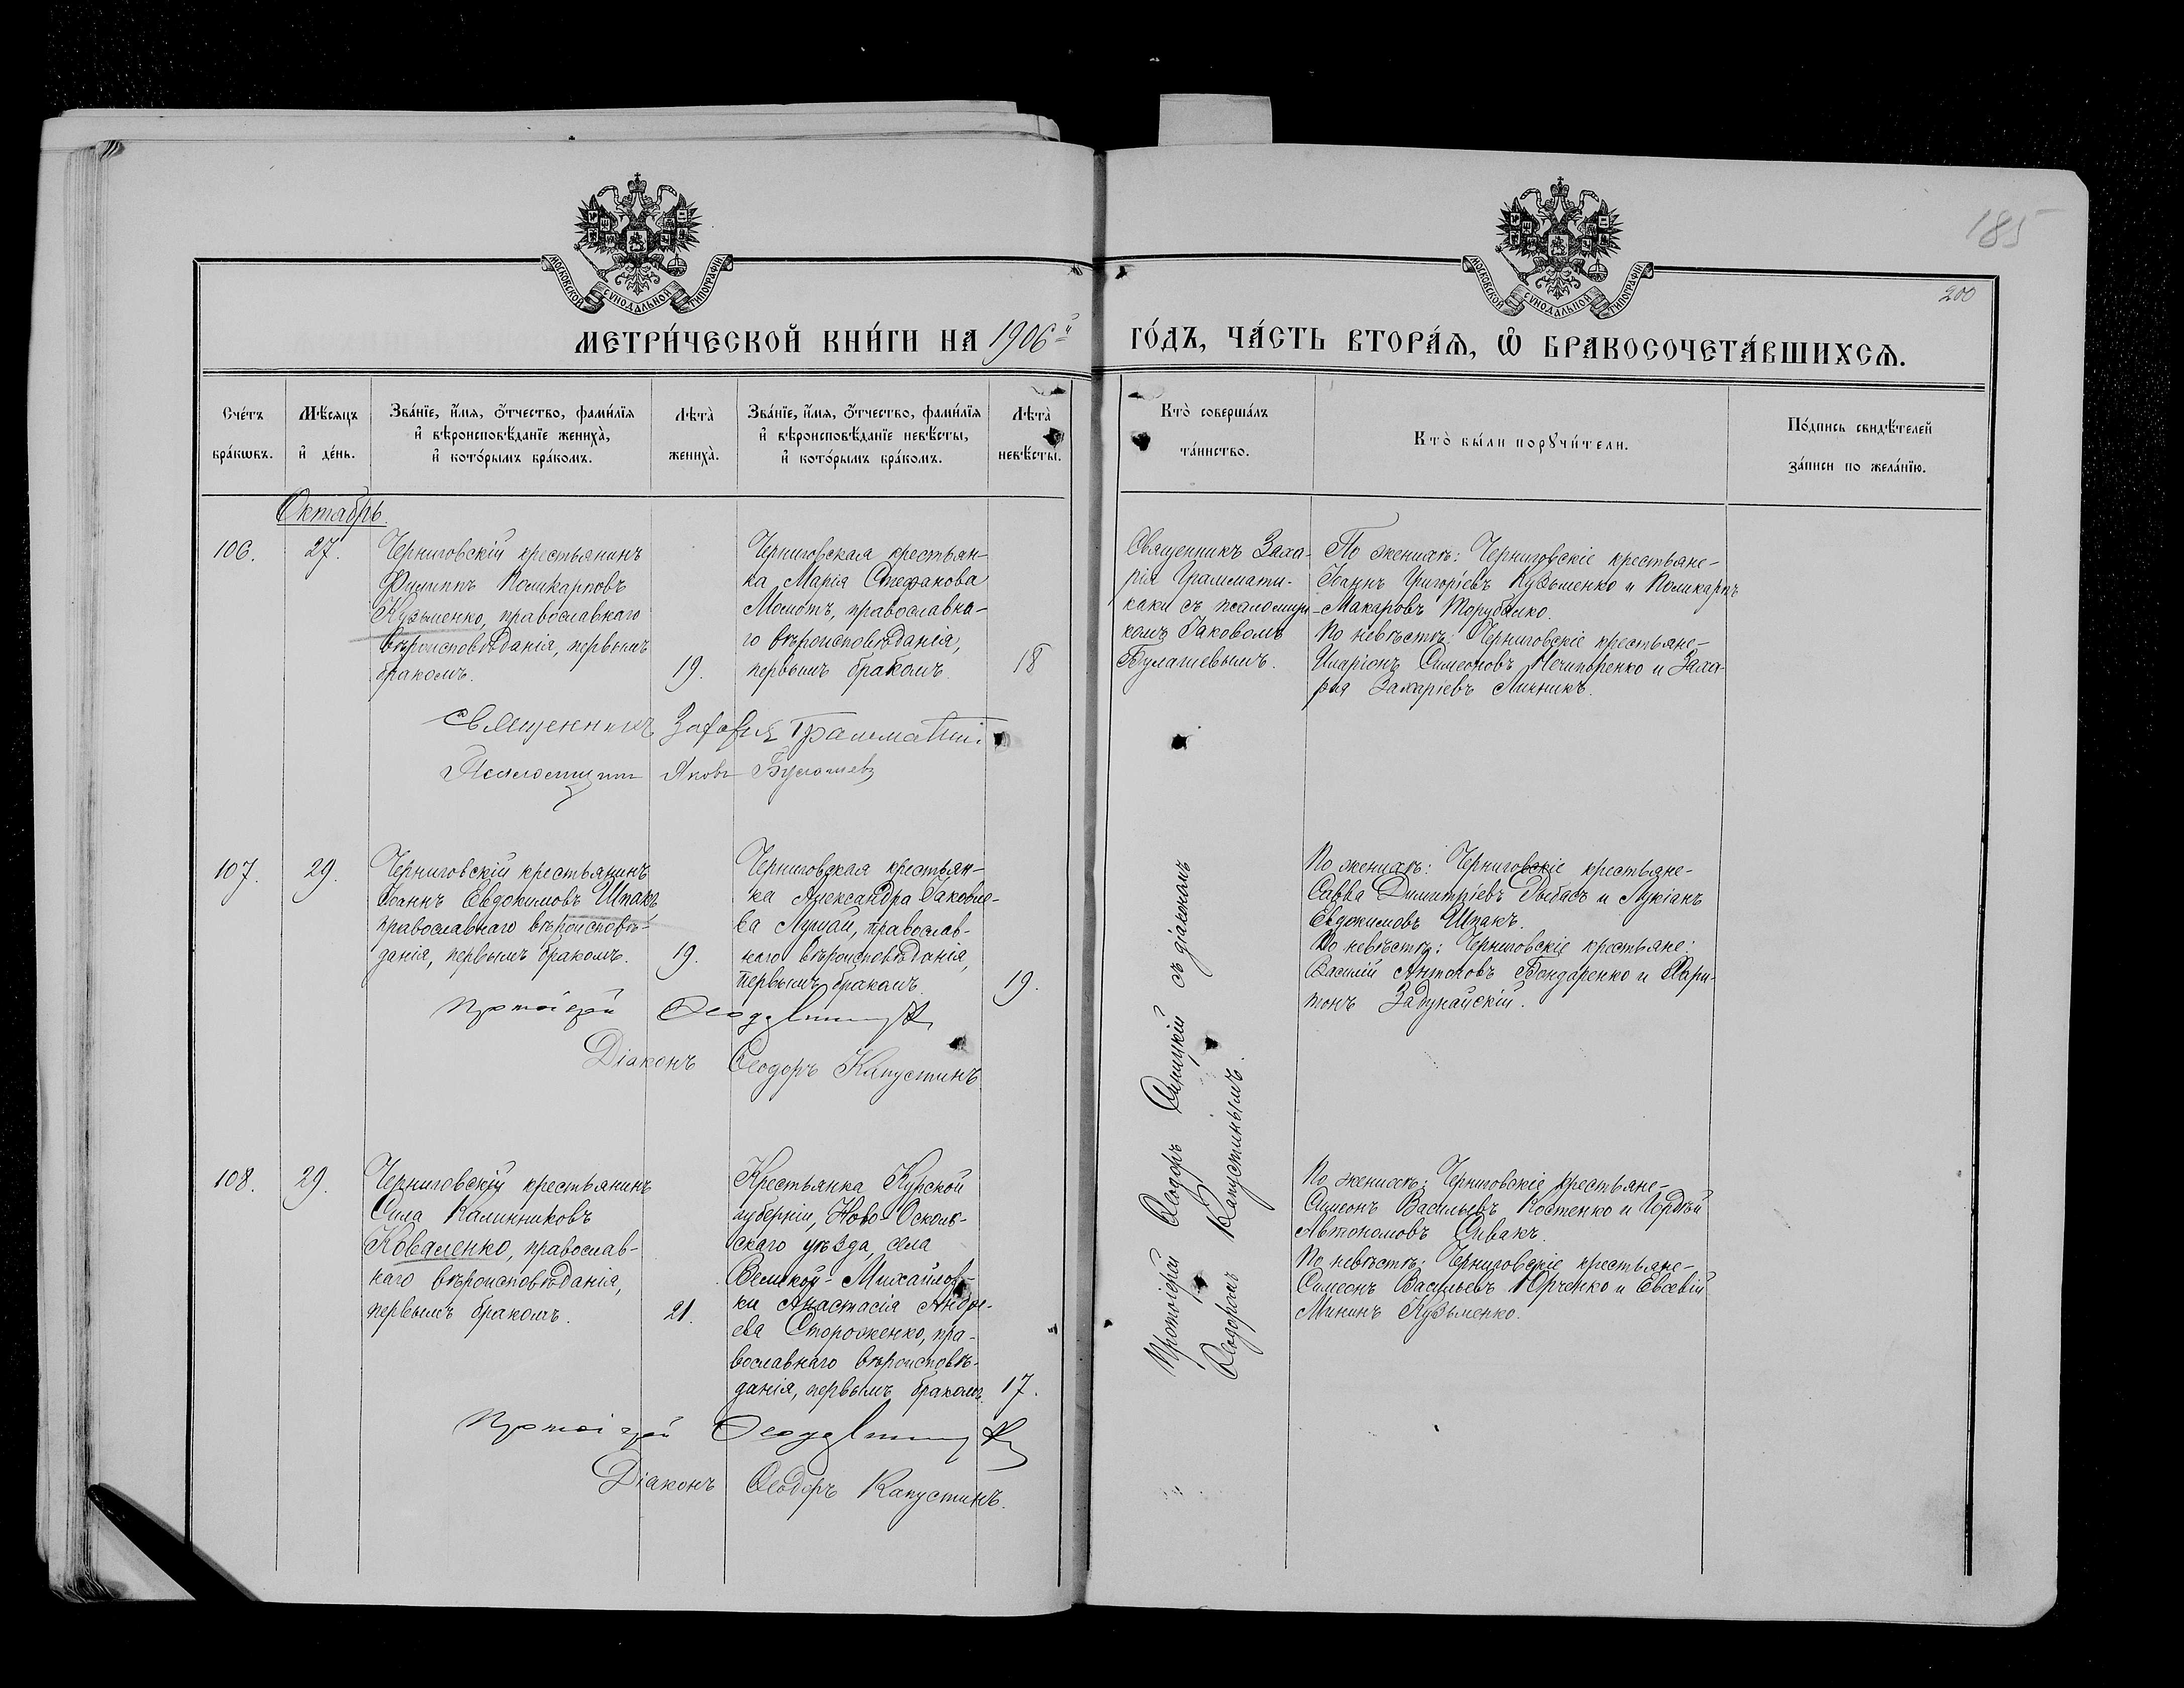 185
200
МОСКОВСКОЙ СѴНОДАЛЬНОЙ ТИПОГРАФІИ
МОСКОВСКОЙ СѴНОДАЛЬНОЙ ТИПОГРАФІИ
МЕТРИ́ЧЕСКОЙ КНИ́ГИ НА 1906й ГО́ДЪ, ЧА́СТЬ ВТОРА́Ѧ, Ѽ БРАКОСОЧЕТА́ВШИХСѦ.
Сче́тъ
бра́кѡвъ.
Мѣ́сѧцъ
и҆ де́нь.
Зва́нїе, и҆́мѧ, ѻ҆́тчество, фами́лїѧ
и҆ вѣроисповѣ́данїе жениха̀,
и҆ кото́рымъ бра́комъ.
Лѣта̀
жениха̀.
Зва́нїе, и҆́мѧ, ѻ҆́тчество, фами́лїѧ
и҆ вѣроисповѣ́данїе невѣ́сты,
и҆ кото́рымъ бра́комъ.
Лѣта̀
невѣ́сты.
Кто̀ соверша́лъ
та́инство.
Кто̀ бы́ли порꙋчи́тели.
По́дпись свидѣ́телей
за́писи по жела́нїю.
Октябрь.
106.
27.
Черниговскій крестьянинъ
Филиппъ Поликарповъ
Кузьменко, православнаго
вѣроисповѣданія, первымъ
бракомъ.
19.
Черниговская крестьян-
ка Марія Стефанова
Момотъ, православна-
го вѣроисповѣданія,
первымъ бракомъ.
18
Священникъ Заха-
рія Граммати-
каки съ псаломщи-
комъ Іаковомъ
Булашевымъ.
По женихѣ: Черниговскіе крестьяне-
Іоаннъ Григоріевъ Кузьменко и Поликарпъ
Макаровъ Торубалко.
По невѣстѣ: Черниговскіе крестьяне-
Иларіонъ Симеоновъ Нечипоренко и Заха-
рія Захаріевъ Линникъ.
Священникъ Захарія
Яковъ Булашевъ
107.
29.
Черниговскій крестьянинъ
Іоаннъ Евдокимовъ Шпакъ
православнаго вѣроисповѣ-
данія, первымъ бракомъ.
19.
Черниговская крестьян-
ка Александра Іаковле-
ва Лупай, православ-
наго вѣроисповѣданія,
первымъ бракомъ.
19.
Протоіерей Ѳеодоръ Синицкій съ діакономъ
Ѳеодоромъ Капустинымъ.
По женихѣ: Черниговскіе крестьяне-
Савва Димитріевъ Рыбасъ и Лукіанъ
Евдокимовъ Шпакъ.
По невѣстѣ: Черниговскіе крестьяне:
Василій Антоновъ Бондаренко и Хари-
тонъ Задунайскій.
Протоіерей
Діаконъ Ѳеодоръ Капустинъ
108.
29.
Черниговскій крестьянинъ
Сила Калинниковъ
Коваленко, православ-
наго вѣроисповѣданія,
первымъ бракомъ.
21.
Крестьянка Курской
губерніи, Ново-Осколь-
скаго уѣзда, села
Великой-Михайлов-
ки Анастасія Андре-
ева Стороженко, пра-
вославнаго вѣроисповѣ-
данія, первымъ бракомъ.
17.
По женихѣ: Черниговскіе крестьяне-
Симеонъ Васильевъ Костенко и Гордѣй
Автономовъ Спвакъ.
По невѣстѣ: Черниговскіе крестьяне-
Симеонъ Васильевъ Юрченко и Евсевій
Мининъ Кузьменко.
Протоіерей
Діаконъ Ѳеодоръ Капустинъ.